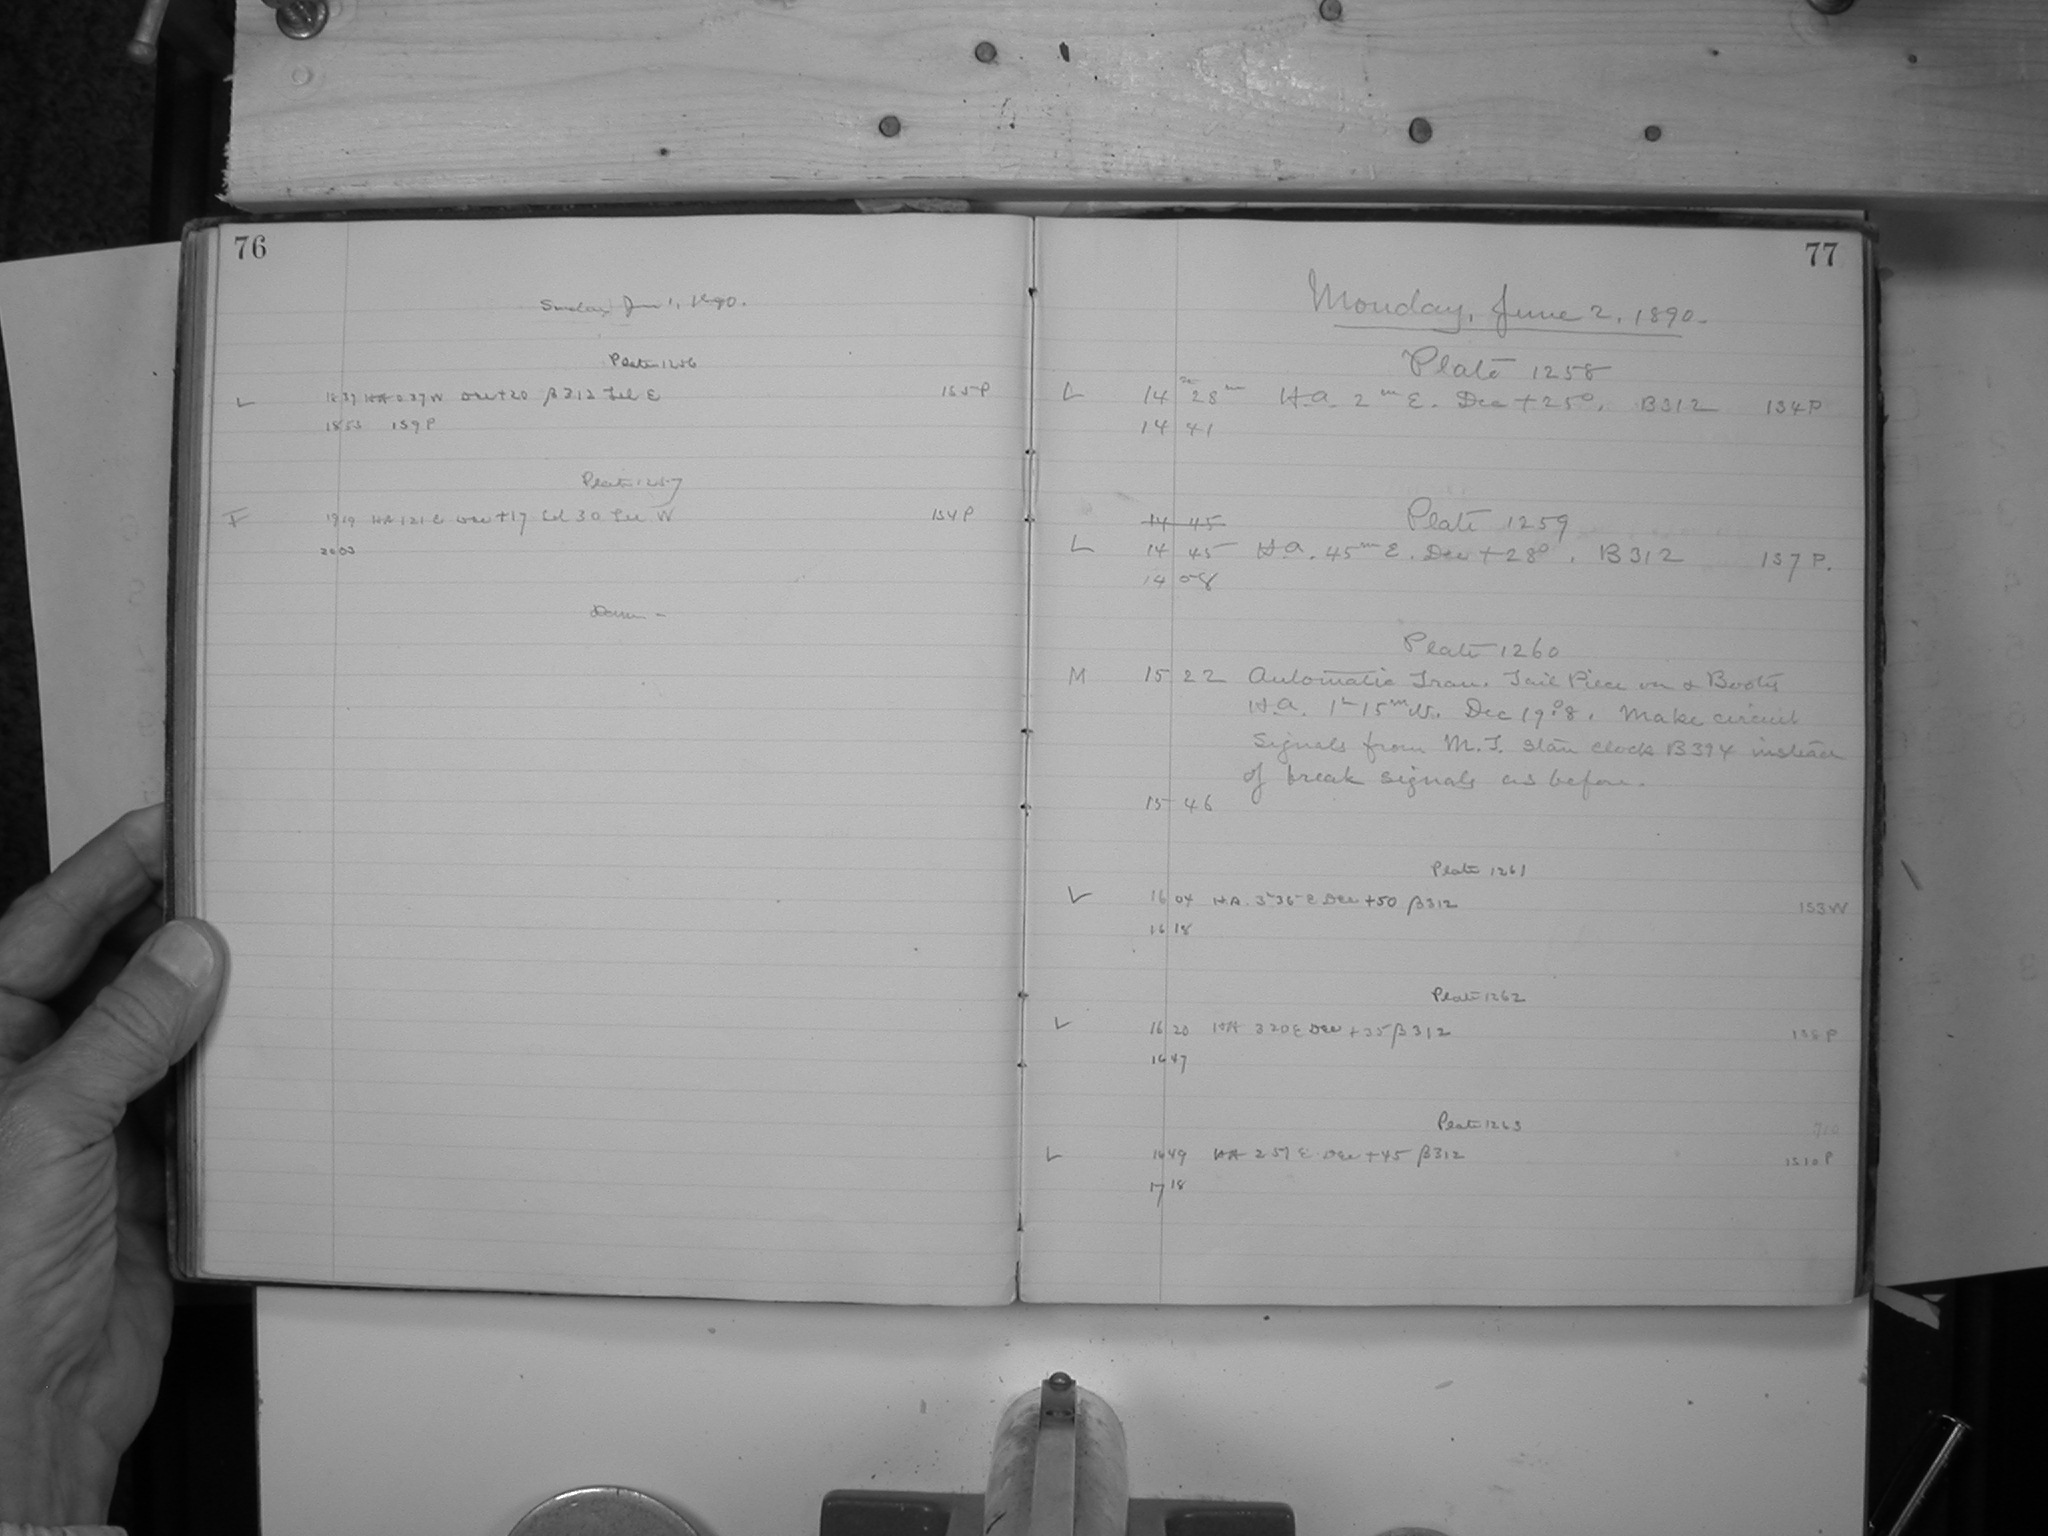 76
Sunday, June 1, 1890.
Plate 1256
L 1837 HA 0 37 W Dec +20 β312 Tel E 155P
1853 159P
Plate 1257
F 1919 HA 1 21 E Dec +17 30 W 154P
2003
Dawn -
77
Monday, June 2, 1890.
Plate 1258
L 14h 28m H.a. 2m E. Dec +25°. B312 154P
14 41
Plate 1259
14 45
L 14 45 H.a. 45m E. Dec +28°. B312 157P.
14 58
Plate 1260
M 15 22 Automatic Tran. Tail Piece on α Bootis
H.a. 1h 15m W. Dec 19°.8. Make circuit
signals from M.T. clock B394 instead
of break signals as before.
15 46
Plate 1261
L 16 04 HA. 3 35 E Dec +50 β312 153W
16 18
Plate 1262
L 16 20 HA 3 20 E Dec +35 β312 158P
16 47
Plate 1263
710
L 16 49 HA 2 57 E Dec +45 β312 1510P
17 18